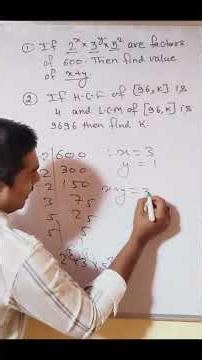 ① If 2^x × 3^y × 5^2 are factors
of 600. Then find value
of x+y.
② If H.C.F of [96,K] is
4 and L.C.M of [96,K] is
9696 then find K.
2 600
2 300
2 150
3 75
5 25
5 5
1
∴ x = 3
y = 1
x+y = 3